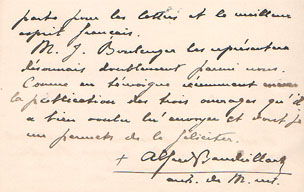 partis pour les lettres et le meilleur
esprit français.
M. J. Boulenger les représentera
désormais doublement parmi nous.
Comme en témoigne récemment
la publication des trois ouvrages qu'il
a bien voulu m'envoyer et dont je
me permets de le féliciter.
+ Alfred Baudrillart